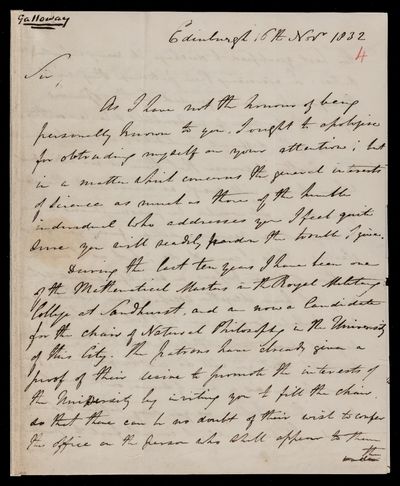 Galloway
Edinburgh, 6th Novr 1832
4
Sir,
As I have not the honour of being
personally known to you, I ought to apologise
for obtruding myself on your attention; but
in a matter which concerns the general interests
of science as much as those of the humble
individual who addresses you I feel quite
sure you will readily pardon the trouble I give.
During the last ten years I have been one
of the Mathematical Masters in the Royal Military
College at Sandhurst, and am now a Candidate
for the chair of Natural Philosophy in the University
of this City. The patrons have already given a
proof of their desire to promote the interests of
the University by inviting you to fill the chair,
so that there can be no doubt of their wish to confer
the office on the person who shall appear to them